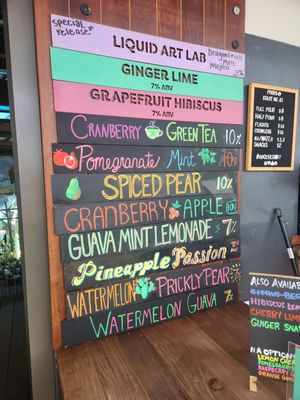 special
release
LIQUID ART LAB
Dragonfruit
Mint
Mojito
7%
GINGER LIME
7% ABV
GRAPEFRUIT HIBISCUS
7% ABV
CRANBERRY GREEN TEA 10%
Pomegranate Mint 10%
SPICED PEAR 10%
CRANBERRY APPLE 10%
GUAVA MINT LEMONADE 7%
Pineapple Passion
WATERMELON PRICKLY PEAR
WATERMELON GUAVA 7%
START AT
FULL POUR
HALF POUR
FLIGHTS
GROWLERS
SNACKS
ALSO AVAILA
HIBISCUS LEM
CHERRY LIM
GINGER SNA
NA OPTION
LEMON CHER
POMEGRANATE
RASPBERRY
ORANGE GING